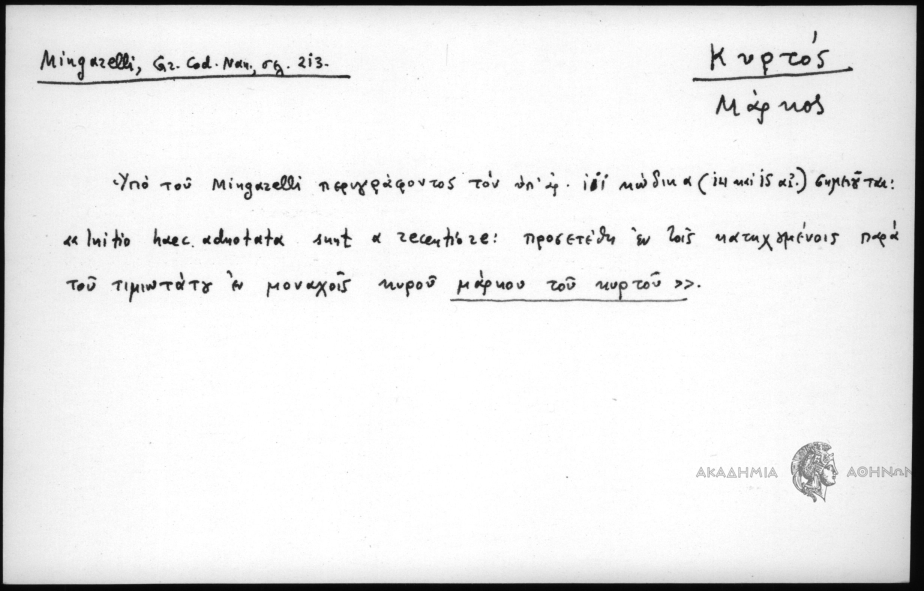 Mingarelli, Gr. Cod. Nan., σελ. 213.
Κυρτός
Μάρκος
Ὑπὸ τοῦ Mingarelli περιγράφοντος τὸν ὑπ' ἀρ. κώδικα (14 καὶ 15 αἰ.) σημειοῦται:
«Initio haec adnotata sunt a recentiore: προσετέθη ἐν τοῖς κατηχουμένοις παρὰ
τοῦ τιμιωτάτου ἐν μοναχοῖς κυροῦ μάρκου τοῦ κυρτοῦ».
ΑΚΑΔΗΜΙΑ ΑΘΗΝΩΝ